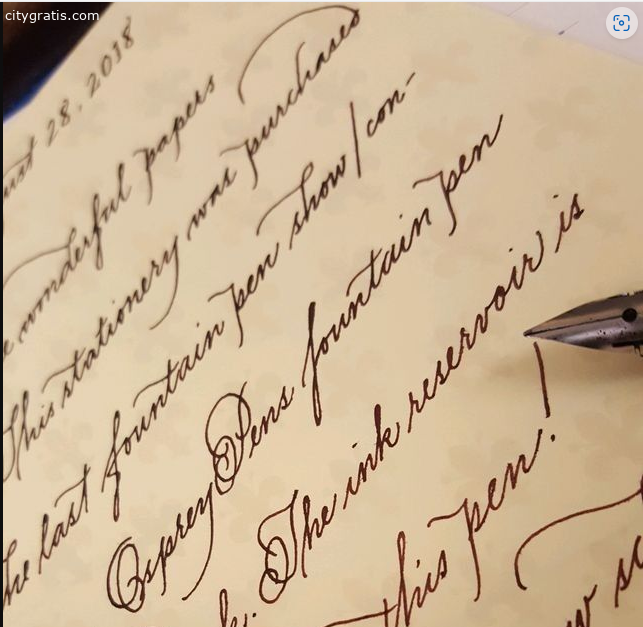 citygratis.com
28, 2018
wonderful papers
This stationery was purchased
last fountain pen show/con-
Osprey Pens fountain pen
The ink reservoir is
this pen!